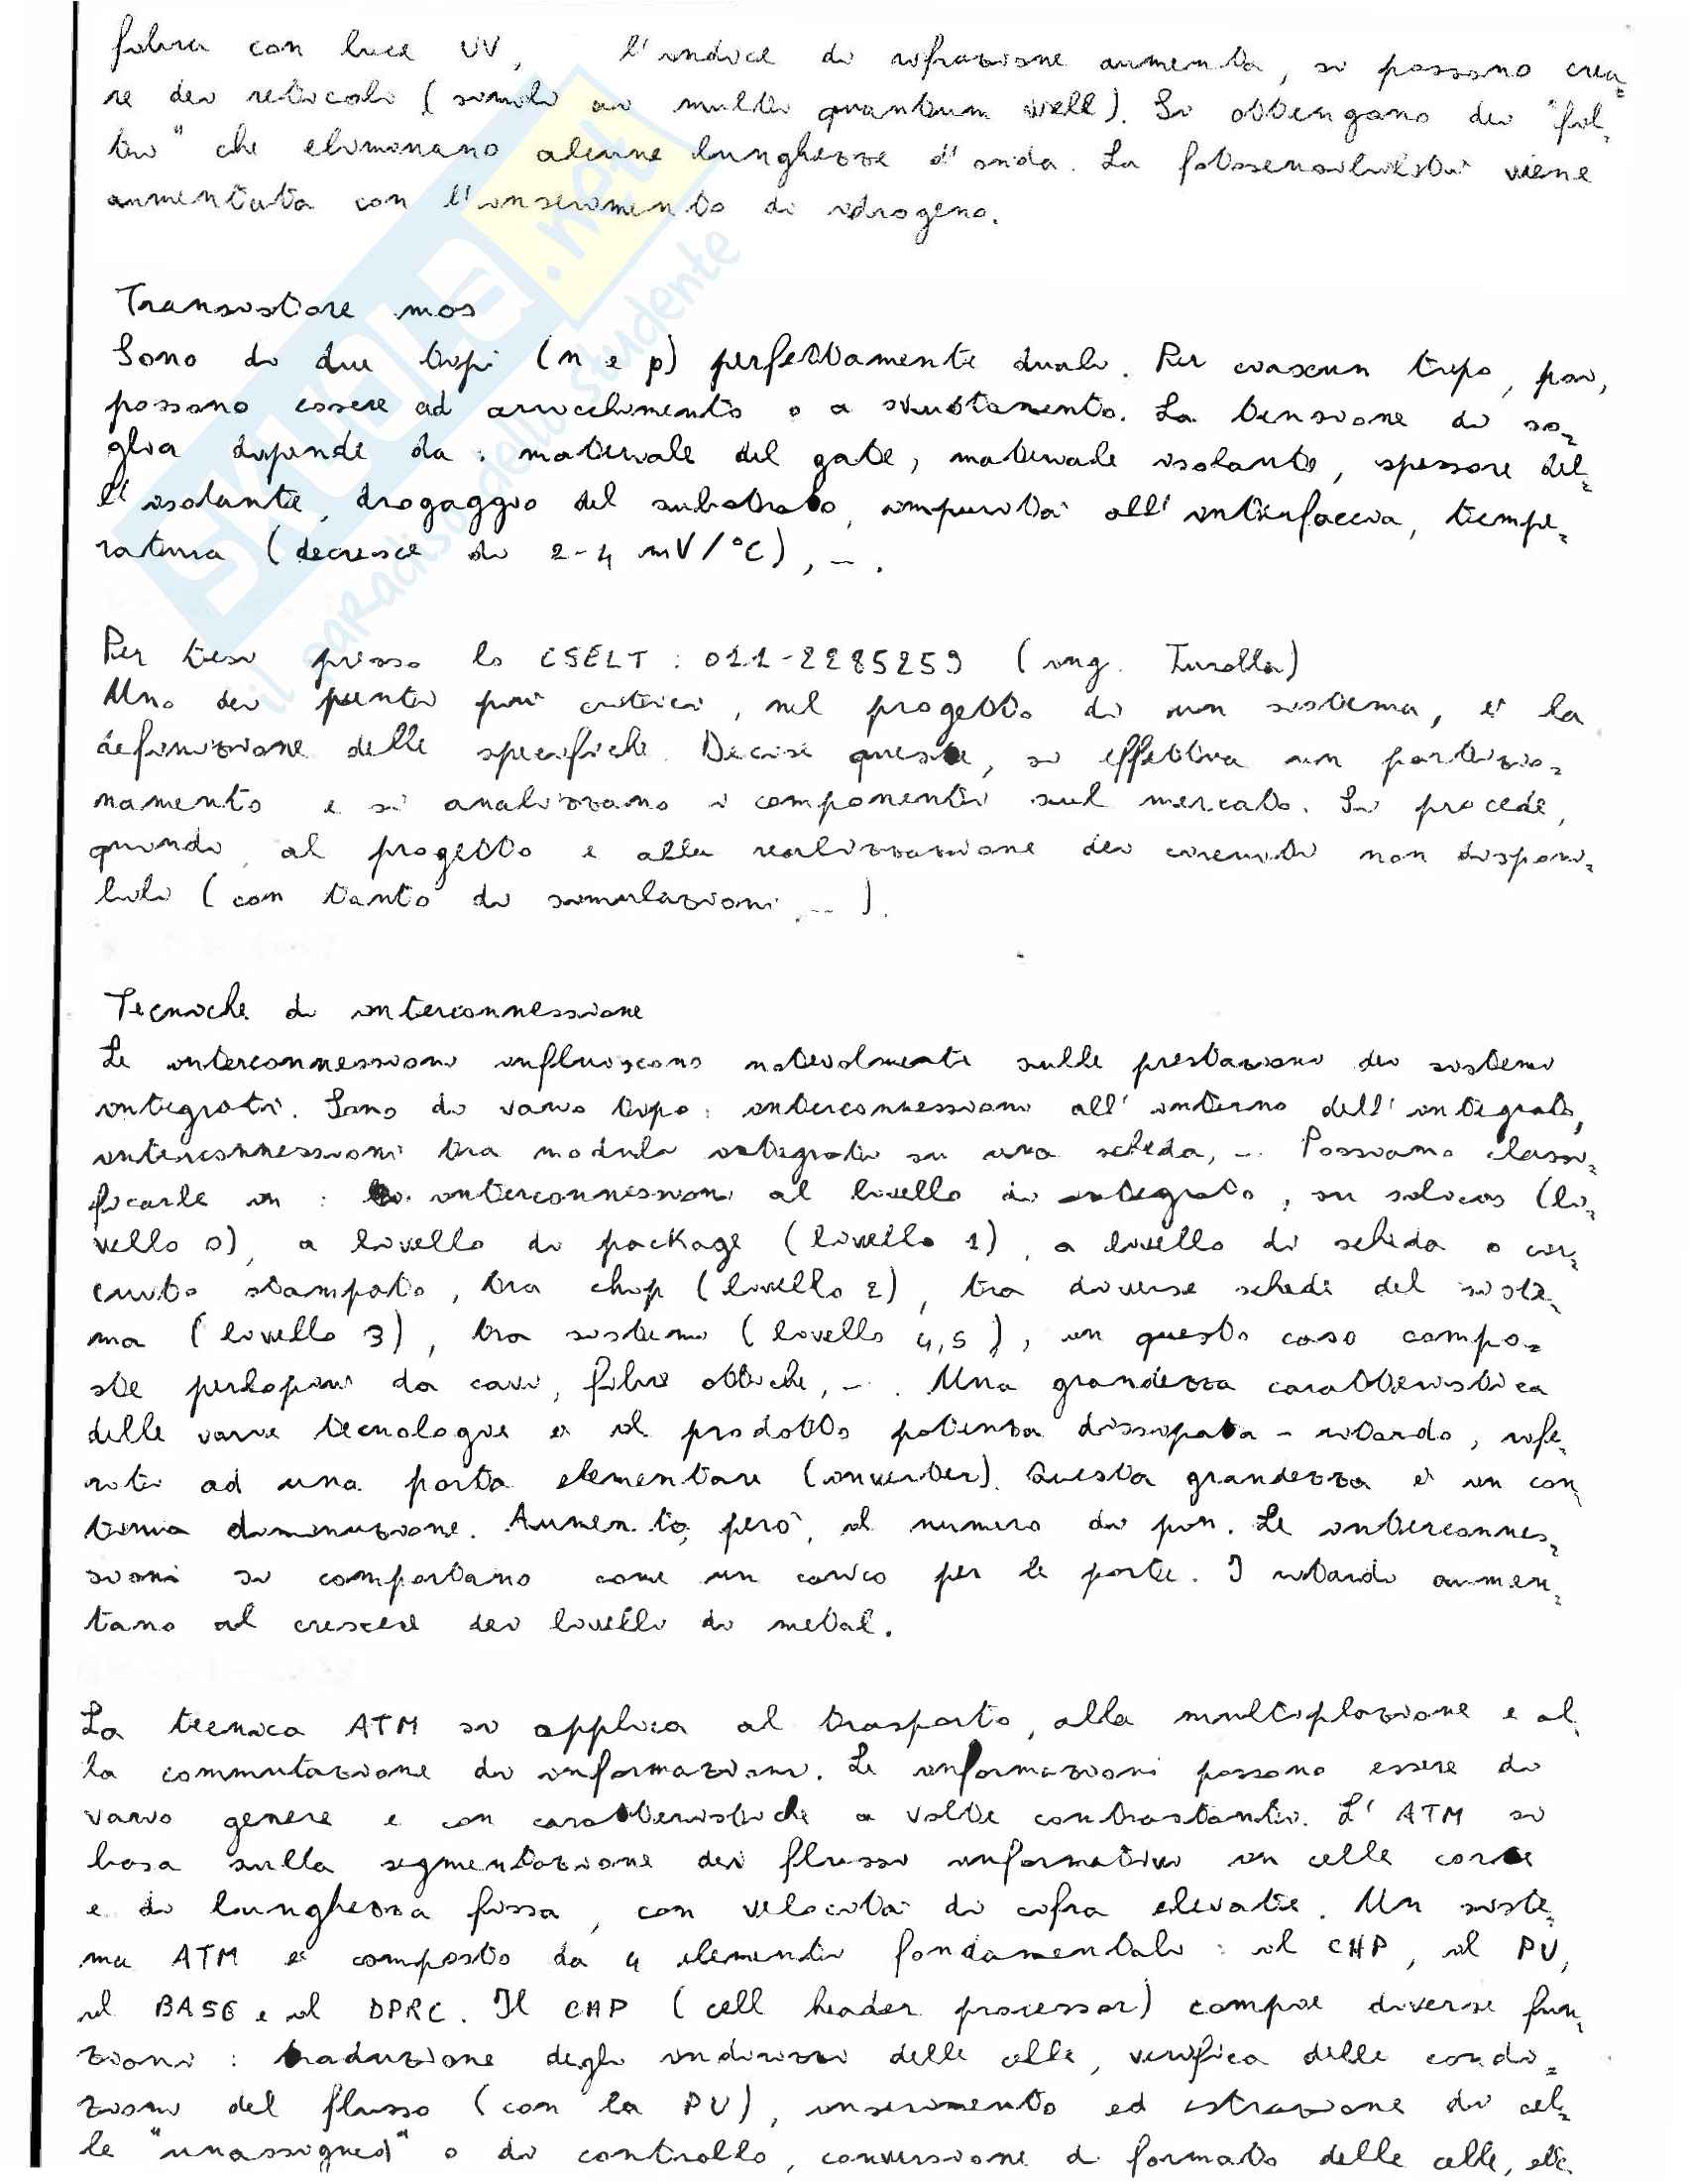 fibra con luce UV, l'indice di rifrazione aumenta, si possono crea=
re dei reticoli (simili ai multi quantum well). Si ottengono dei "fil=
tri" che eliminano alcune lunghezze d'onda. La fotosensibilità viene
aumentata con l'inserimento di idrogeno.
Transistore mos
Sono di due tipi (n e p) perfettamente duali. Per ciascun tipo, poi,
possono essere ad arricchimento o a svuotamento. La tensione di so=
glia dipende da: materiale del gate, materiale isolante, spessore del=
l'isolante, drogaggio del substrato, impurità all'interfaccia, tempe=
ratura (decresce di 2-4 mV/°C), ... .
Per tesi presso lo CSELT: 011-2285259 (ing. Turolla)
Uno dei punti più critici, nel progetto di un sistema, è la
definizione delle specifiche. Decise queste, si effettua un partizio=
namento e si analizzano i componenti sul mercato. Si procede,
quindi, al progetto e alla realizzazione dei circuiti non disponi=
bili (con tanto di simulazioni, ...).
Tecniche di interconnessione
Le interconnessioni influiscono notevolmente sulle prestazioni dei sistemi
integrati. Sono di vario tipo: interconnessioni all'interno dell'integrato,
interconnessioni tra moduli integrati su una scheda, ... Possiamo classi=
ficarle in: interconnessioni al livello di integrato, su silicio (li=
vello 0), a livello di package (livello 1), a livello di scheda o cir=
cuito stampato, tra chip (livello 2), tra diverse schede del siste=
ma (livello 3), tra sistemi (livello 4,5), in questo caso compo=
ste perlopiù da cavi, fibre ottiche, ... . Una grandezza caratteristica
delle varie tecnologie è il prodotto potenza dissipata - ritardo, rife=
riti ad una porta elementare (inverter). Questa grandezza è in con=
tinua diminuzione. Aumenta, però, il numero di pin. Le interconnes=
sioni si comportano come un carico per le porte. I ritardi aumen=
tano al crescere dei livelli di metal.
La tecnica ATM si applica al trasporto, alla multiplazione e al=
la commutazione di informazioni. Le informazioni possono essere di
vario genere e con caratteristiche a volte contrastanti. L'ATM si
basa sulla segmentazione dei flussi informativi in celle corte
e di lunghezza fissa, con velocità di cifra elevate. Un siste=
ma ATM è composto da 4 elementi fondamentali: il CHP, il PU,
il BASE e il DPRC. Il CHP (cell header processor) compie diverse fun=
zioni: traduzione degli indirizzi delle celle, verifica delle condi=
zioni del flusso (con la PU), inserimento ed estrazione di cel=
le "unassigned" o di controllo, conversione di formato delle celle, etc.
SKUOLA.net
il paradiso dello studente